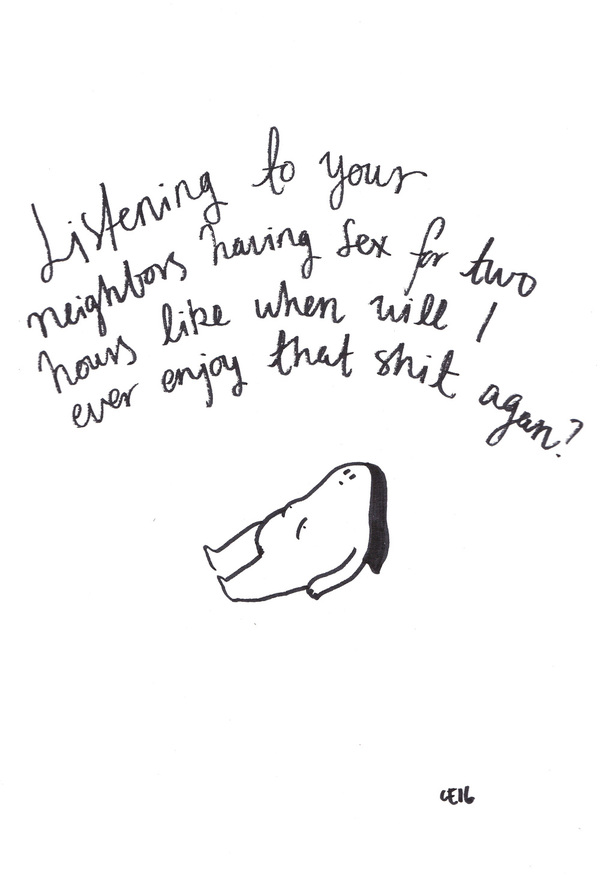 Listening to your
neighbors having sex for two
hours like when will I
ever enjoy that shit again?
CE16